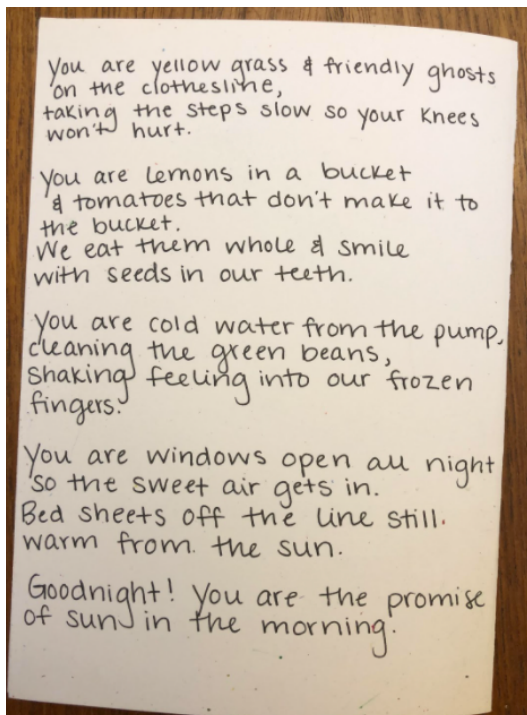 You are yellow grass & friendly ghosts
on the clothesline,
taking the steps slow so your knees
won't hurt.
You are lemons in a bucket
& tomatoes that don't make it to
the bucket.
We eat them whole & smile
with seeds in our teeth.
You are cold water from the pump,
cleaning the green beans,
shaking feeling into our frozen
fingers.
You are windows open all night
so the sweet air gets in.
Bed sheets off the line still
warm from the sun.
Goodnight! You are the promise
of sun in the morning.